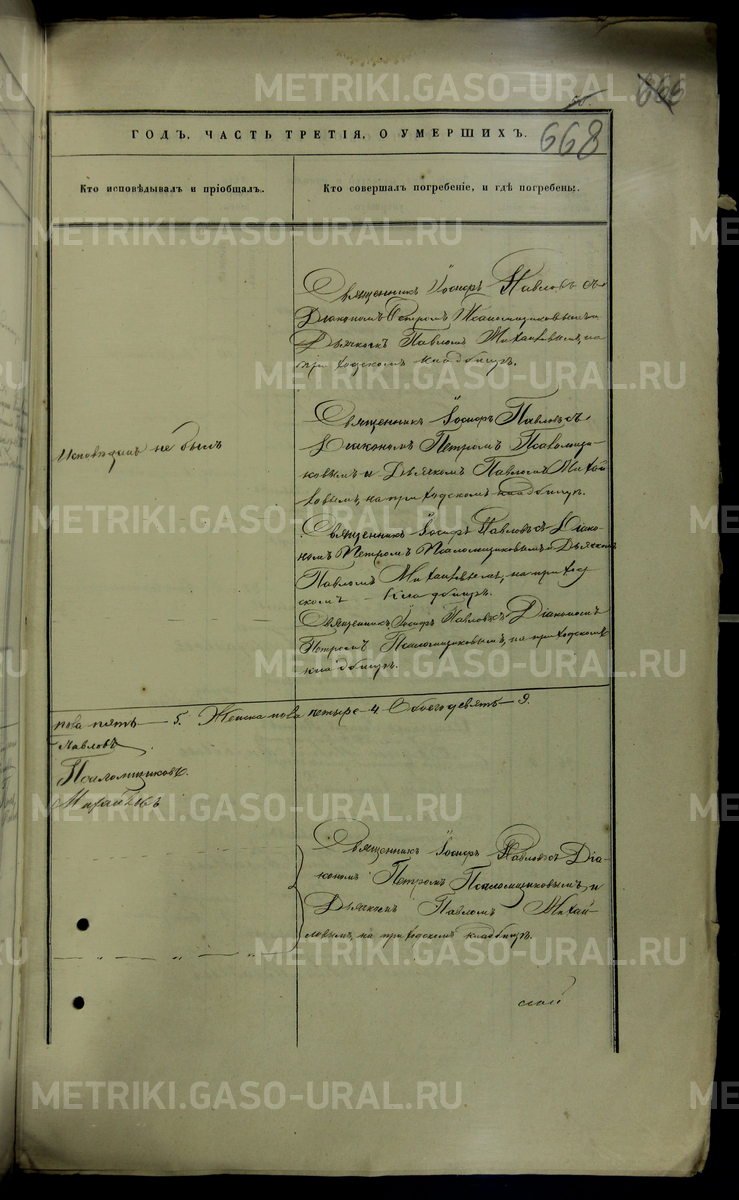 666
668
ГОДЪ, ЧАСТЬ ТРЕТІЯ, О УМЕРШИХЪ.
Кто исповѣдывалъ и пріобщалъ.
Кто совершалъ погребеніе, и гдѣ погребены.
Священникъ Іосифъ Павловъ съ
Діакономъ Петромъ Псаломщиковымъ и
Дьячкомъ Павломъ Михайловымъ, на
приходскомъ кладбищѣ.
не былъ
Священникъ Іосифъ Павловъ съ
Діакономъ Петромъ Псаломщи-
ковымъ и Дьячкомъ Павломъ Михай
ловымъ, на приходскомъ кладбищѣ.
Священникъ Іосифъ Павловъ съ Діако-
номъ Петромъ Псаломщиковымъ и Дьячкомъ
Павломъ Михайловымъ, на приход
скомъ кладбищѣ.
Священникъ Іосифъ Павловъ съ Діакономъ
Петромъ Псаломщиковымъ, на приходскомъ
кладбищѣ.
пола пять — 5. Женска пола четыре 4 Обоего девять — 9.
Павловъ
Псаломщиковъ.
Михайловъ
Священникъ Іосифъ Павловъ съ Діа-
кономъ Петромъ Псаломщиковымъ, и
Дьячкомъ Павломъ Михай-
ловымъ, на приходскомъ кладбищѣ.
METRIKI.GASO-URAL.RU